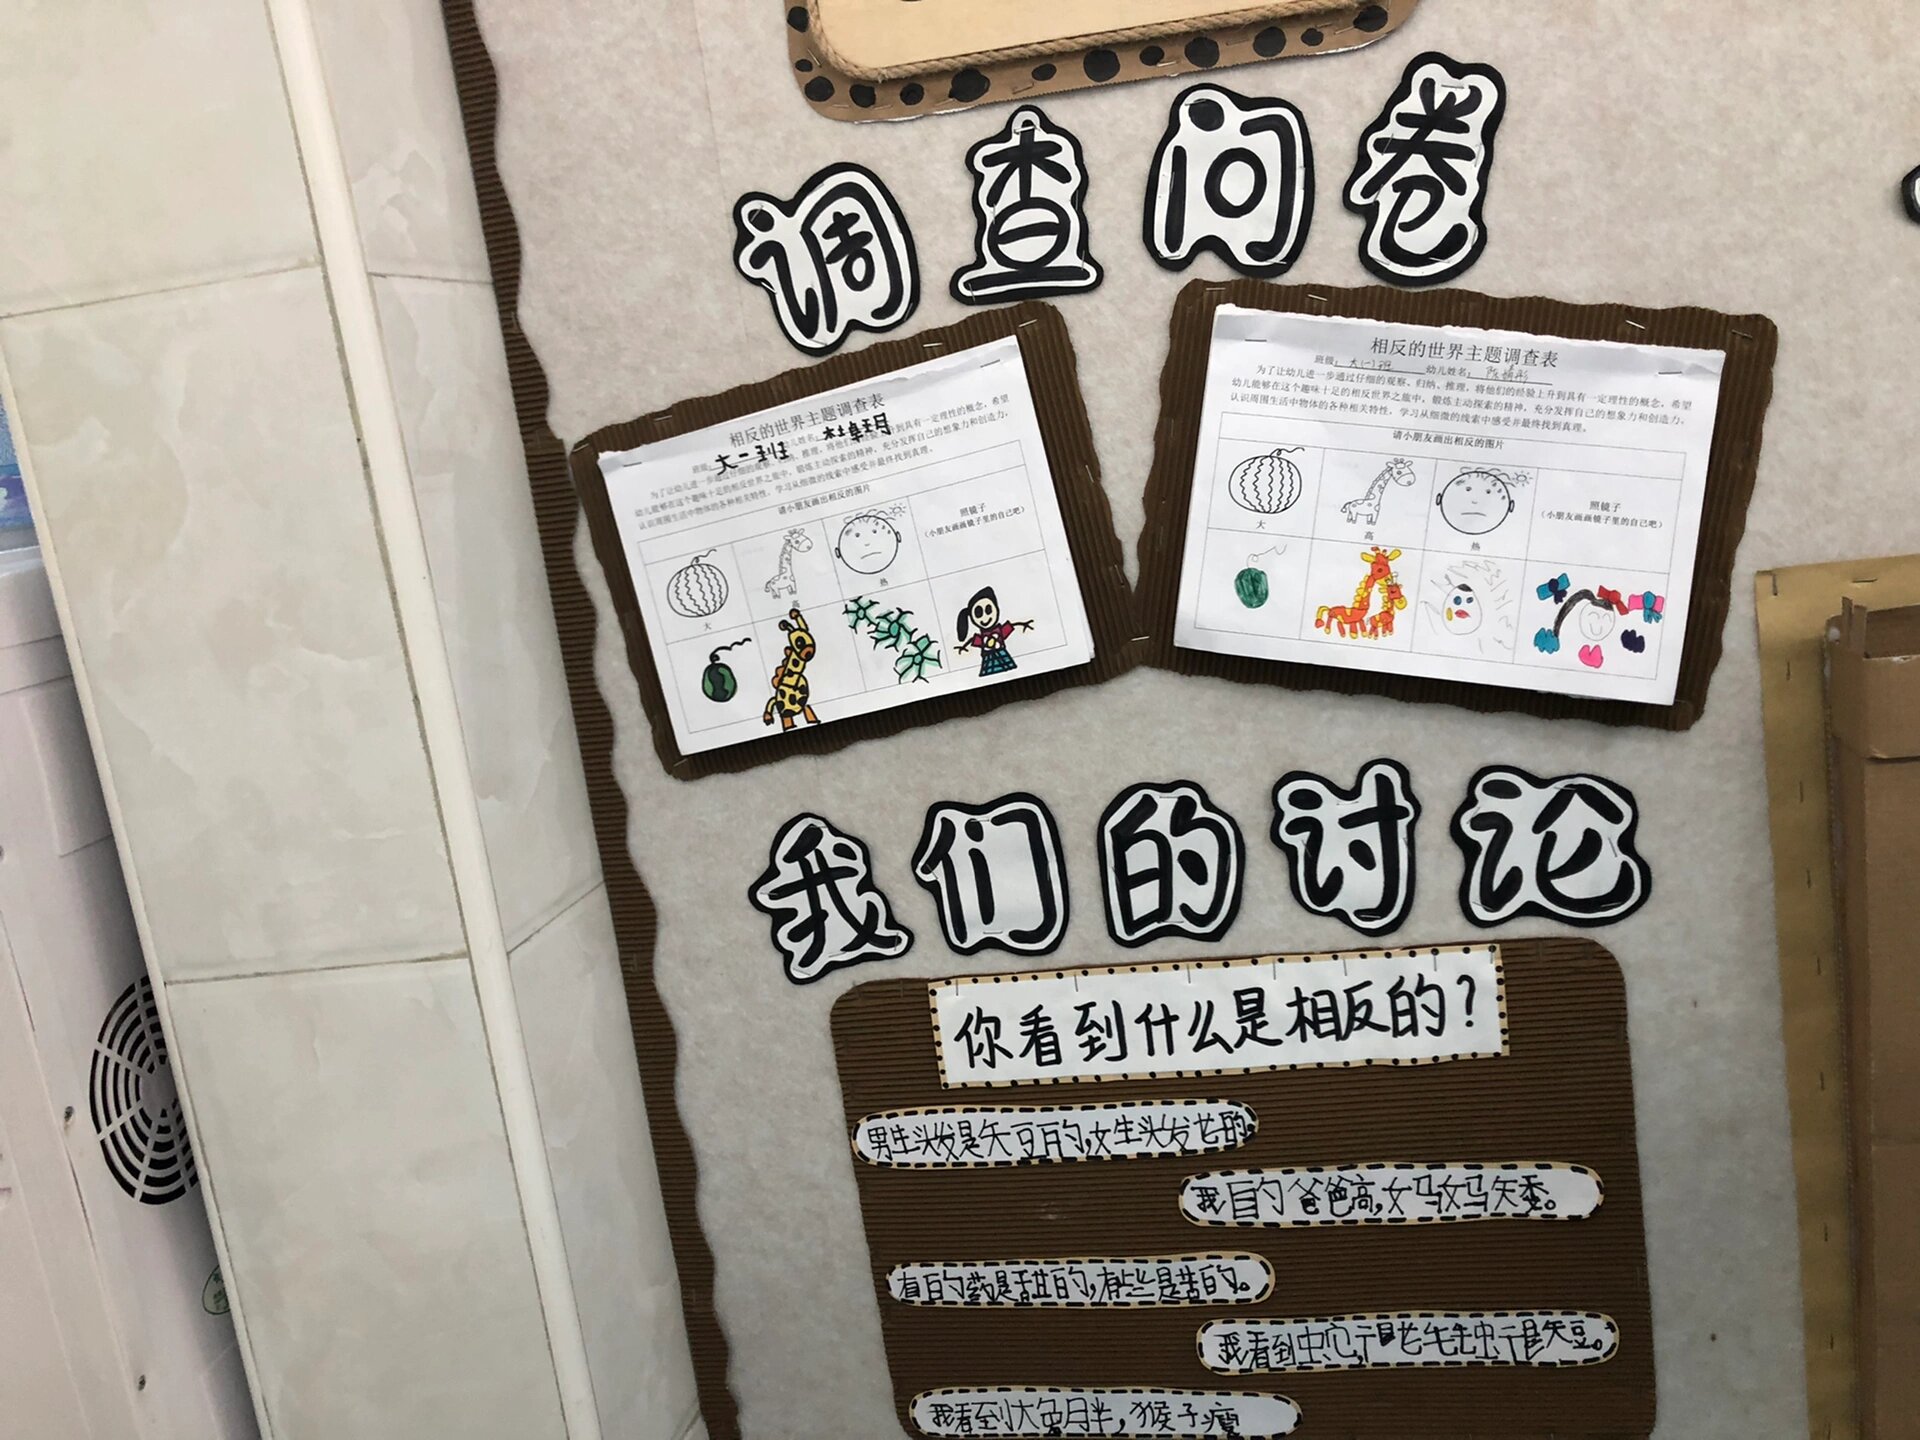 调查问卷
相反的世界主题调查表
班级：大一班 幼儿姓名：
为了让幼儿进一步通过仔细的观察、归纳、推理，将他们的经验上升到具有一定理性的概念，希望
幼儿能够在这个趣味十足的相反世界之旅中，锻炼主动探索的精神，充分发挥自己的想象力和创造力，
认识周围生活中物体的各种相关特性，学习从细微的线索中感受并最终找到真理。
请小朋友画出相反的图片
大
高
热
照镜子
（小朋友画画镜子里的自己吧）
相反的世界主题调查表
班级：大一班 幼儿姓名：
为了让幼儿进一步通过仔细的观察、归纳、推理，将他们的经验上升到具有一定理性的概念，希望
幼儿能够在这个趣味十足的相反世界之旅中，锻炼主动探索的精神，充分发挥自己的想象力和创造力，
认识周围生活中物体的各种相关特性，学习从细微的线索中感受并最终找到真理。
请小朋友画出相反的图片
大
高
热
照镜子
（小朋友画画镜子里的自己吧）
我们的讨论
你看到什么是相反的？
男生头发是短的，女生头发长的。
我的爸爸高，妈妈矮。
有的药是甜的，有些是苦的。
我看到蛇，是长毛毛虫是短。
我看到大象胖，猴子瘦